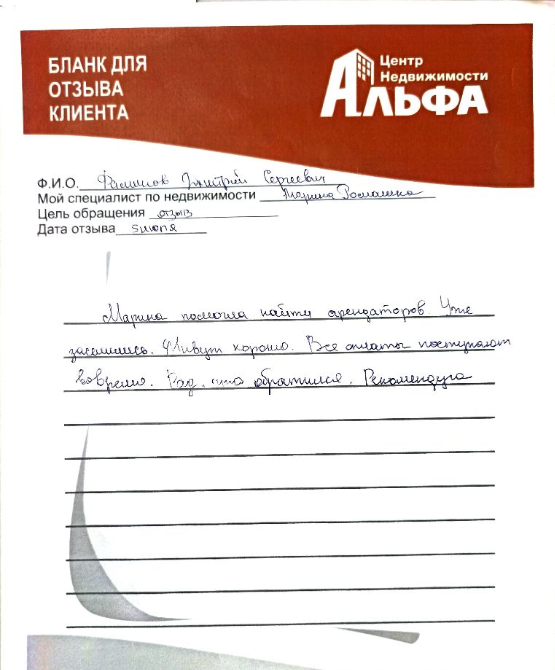 БЛАНК ДЛЯ
ОТЗЫВА
КЛИЕНТА
Центр
Недвижимости
АЛЬФА
Ф.И.О. Дмитрий Сергеевич
Мой специалист по недвижимости Марина Ромашка
Цель обращения отзыв
Дата отзыва 5 июня
Марина помогла найти арендаторов. Уже
заселились. Живут хорошо. Все оплаты поступают
вовремя. Рад, что обратился. Рекомендую